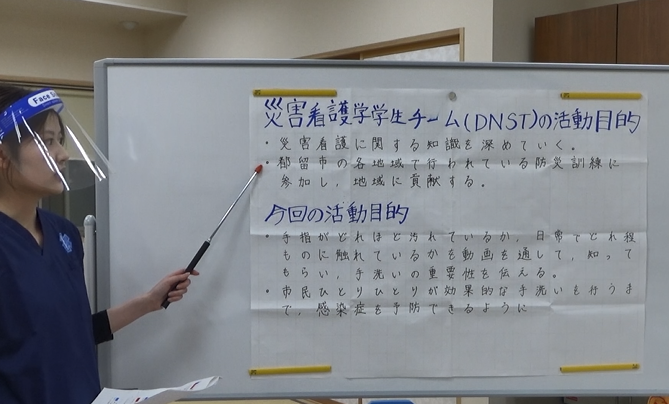 Face S
災害看護学学生チーム(DNST)の活動目的
・災害看護に関する知識を深めていく。
・都留市の各地域で行われている防災訓練に
参加し、地域に貢献する。
今回の活動目的
・手指がどれほど汚れているか、日常でどれ程
ものに触れているかを動画を通して、知って
もらい、手洗いの重要性を伝える。
・市民ひとりひとりが効果的な手洗いを行うま
で、感染症を予防できるように